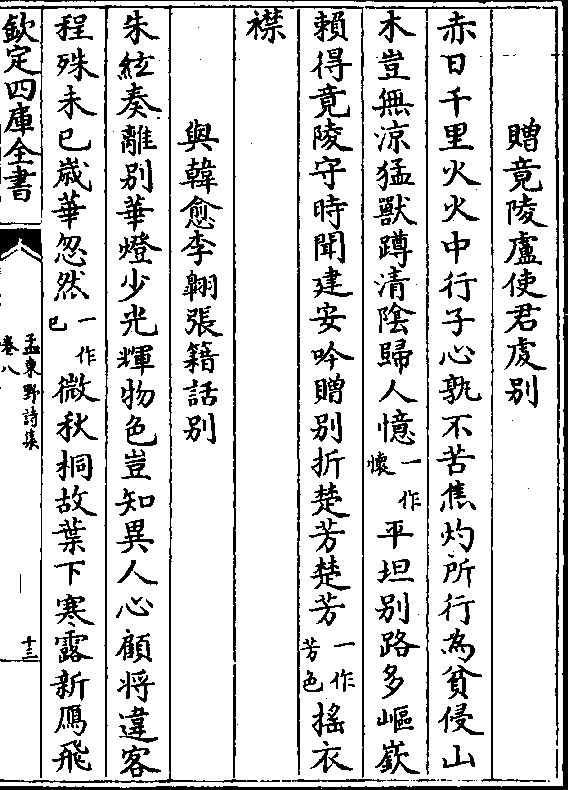 贈竟陵盧使君虔别
赤日千里火火中行子心孰不苦焦灼所行為貧侵山
木豈無涼猛獸蹲清陰歸人憶一作懷平坦别路多嶇嶔
賴得竟陵守時聞建安吟贈别折楚芳楚芳一作芳色搖衣
襟
與韓愈李翺張籍話别
朱絃奏離别華燈少光輝物色豈知異人心顧将違客
程殊未已嵗華忽然一作已微秋桐故葉下寒露新鴈飛
欽定四庫全書
孟東野詩集
卷八
十三